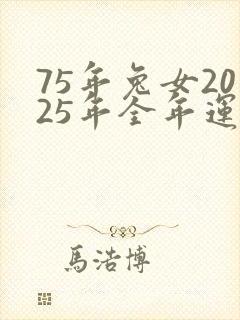 75年兔女20
25年全年運
馬浩博